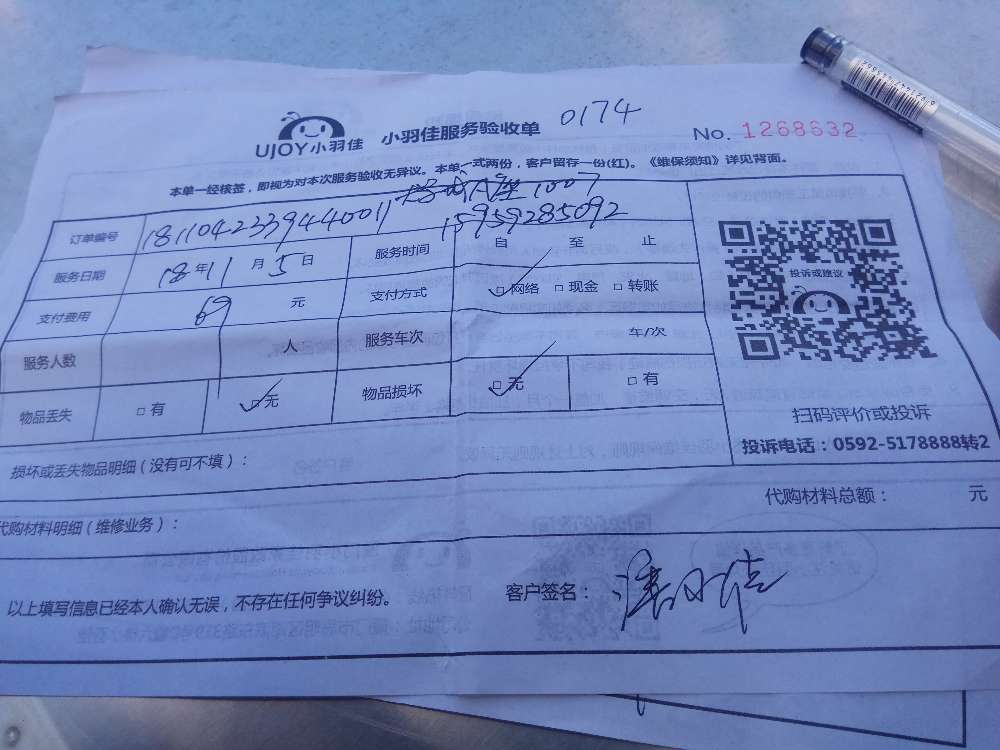 UJOY小羽佳 小羽佳服务验收单 0174 No. 1268632
本单一经核签，即视为对本次服务验收无异议。本单一式两份，客户留存一份(红)。《维保须知》详见背面。
A座1007
订单编号 1811042339440011 15959285092
服务日期 18年11月5日 服务时间 自 至 止
支付费用 69 元 支付方式 □网络 □现金 □转账
服务人数 人 服务车次 车/次
物品丢失 □有 □无 物品损坏 □无 □有
投诉或建议
扫码评价或投诉
投诉电话：0592-5178888转2
损坏或丢失物品明细（没有可不填）：
代购材料总额： 元
代购材料明细（维修业务）：
以上填写信息已经本人确认无误，不存在任何争议纠纷。 客户签名：